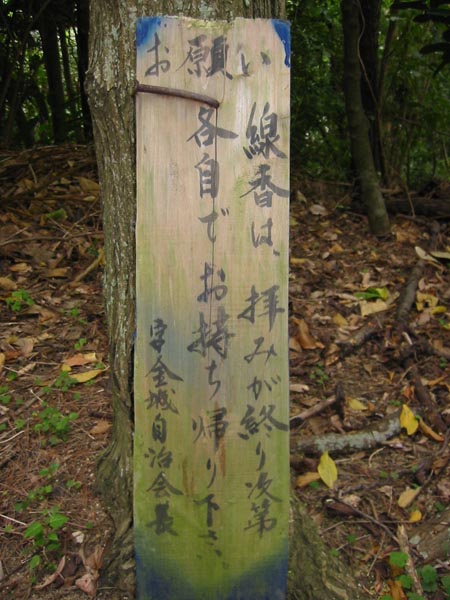 お願い
線香は、拝みが終り次第
各自でお持ち帰り下さい。
字金城自治会長